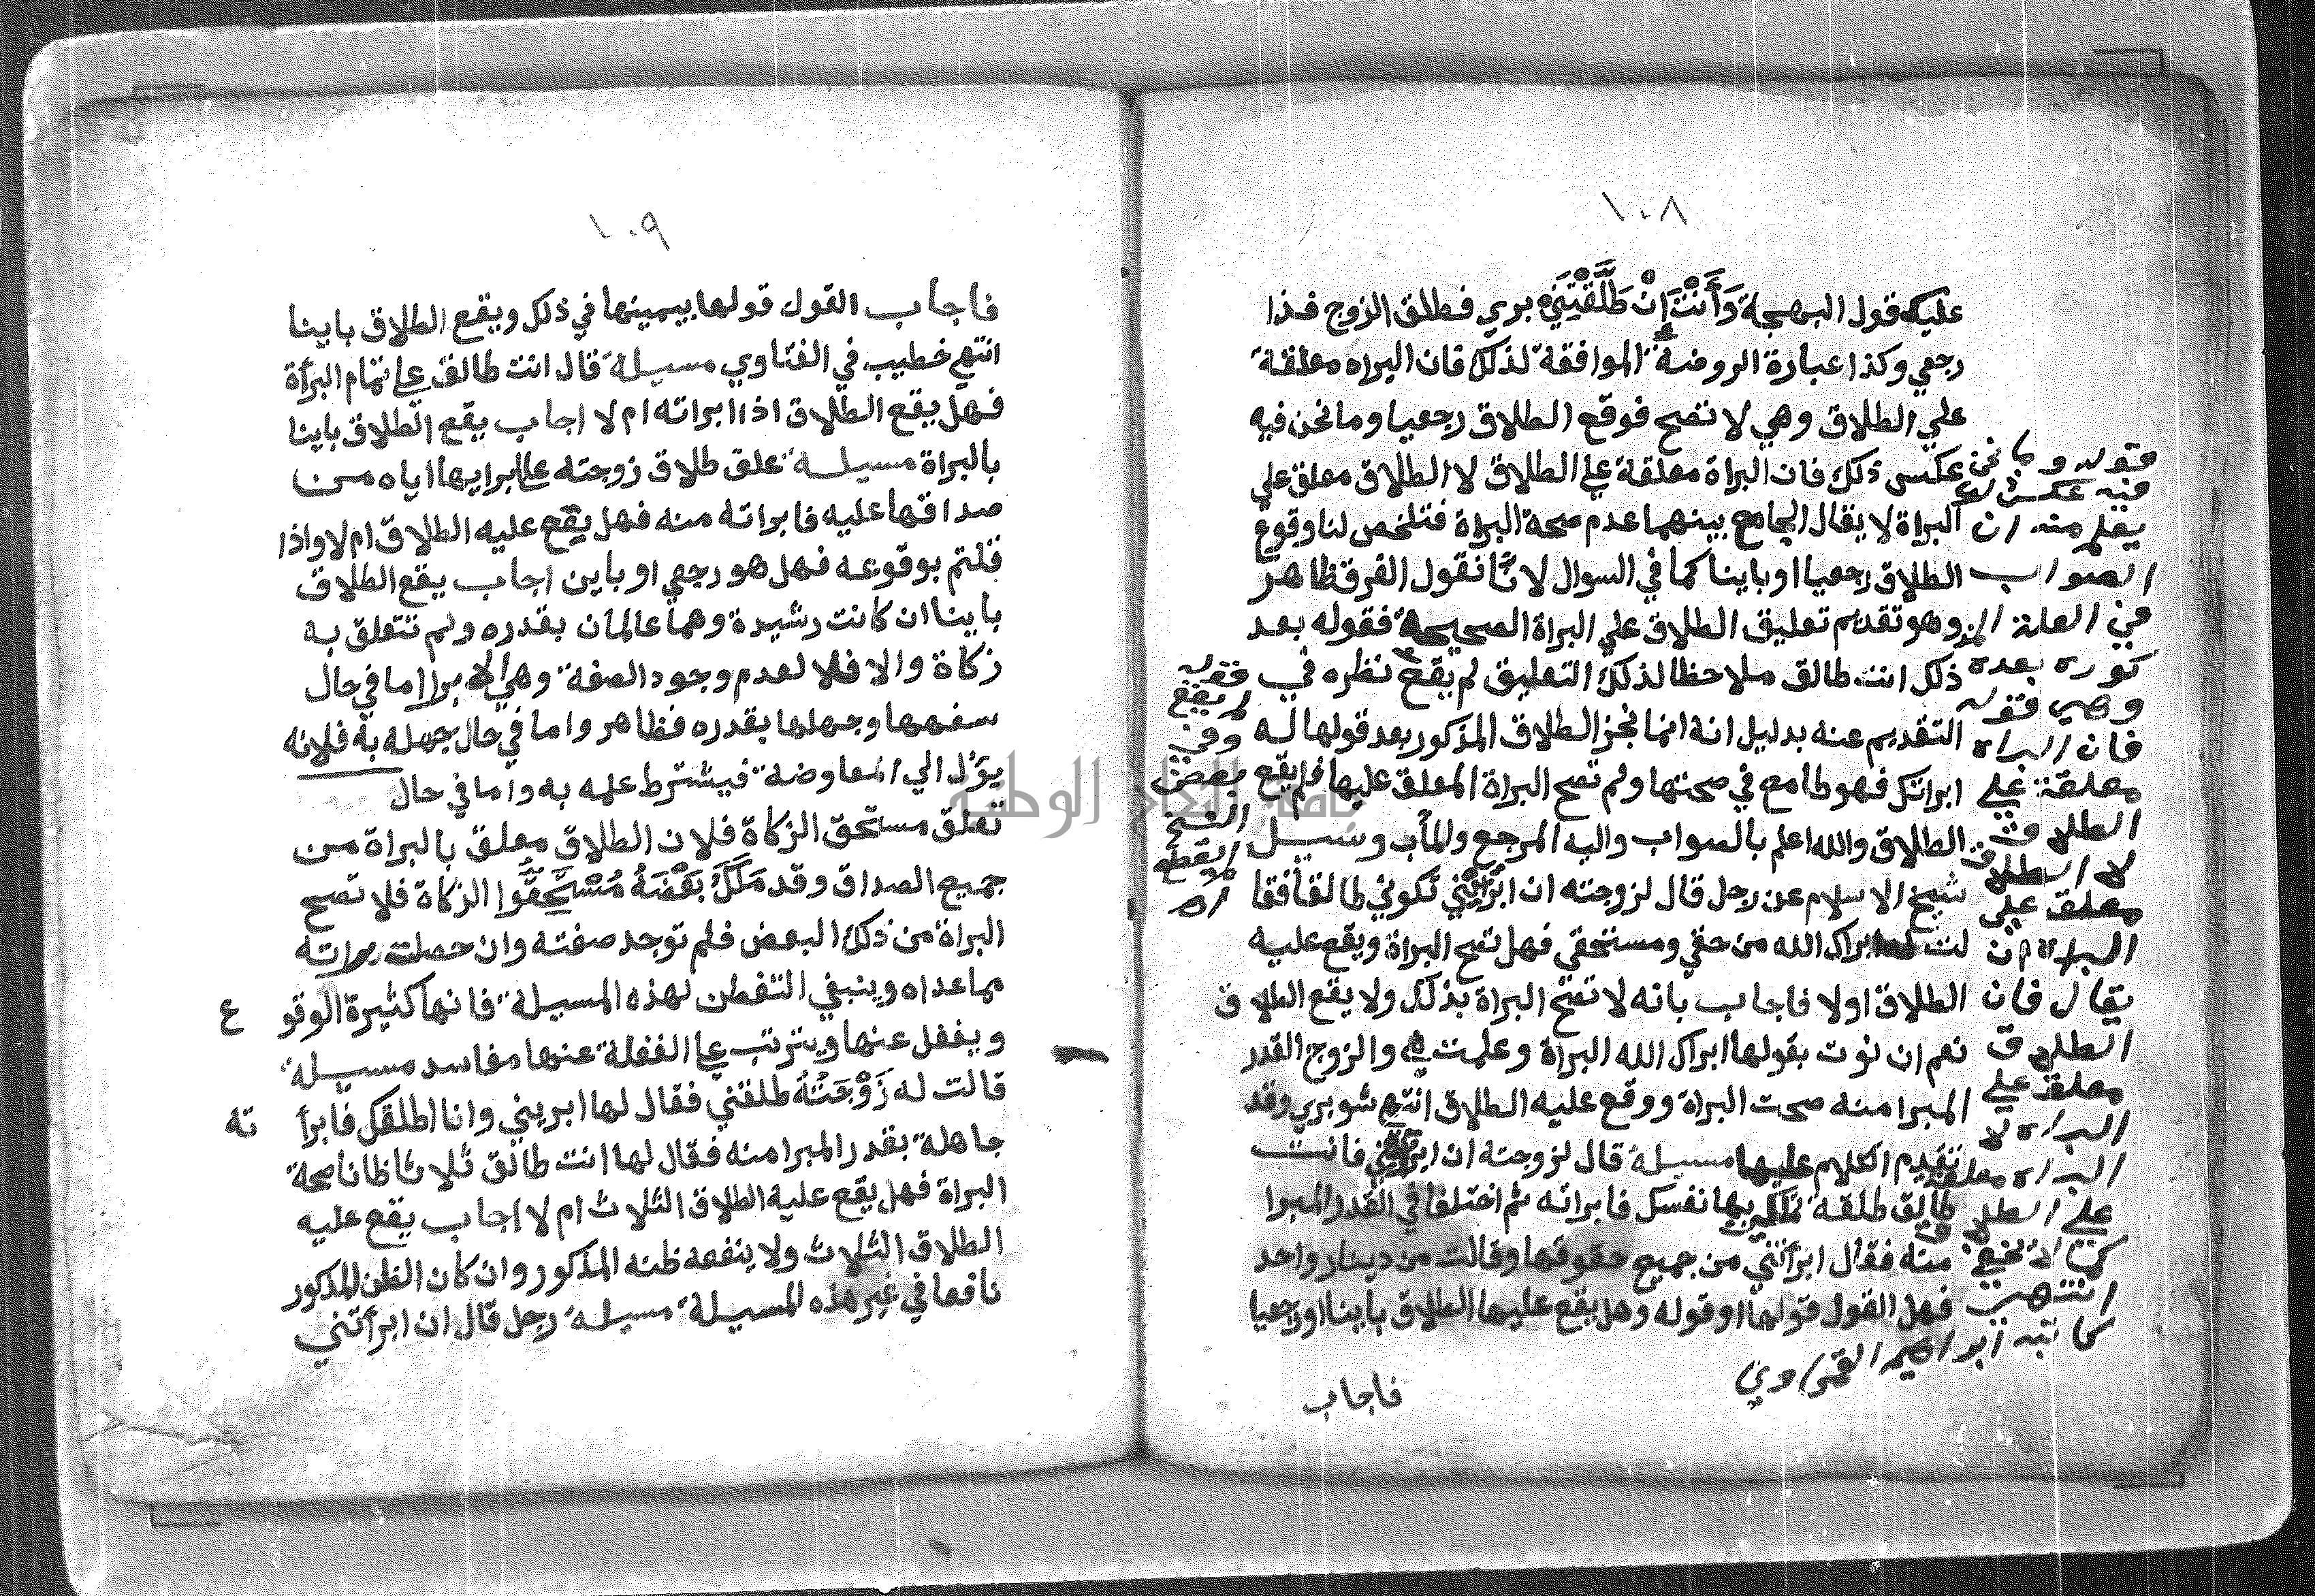 ١٠٨
عليك قول البهجة وَأَنْتَ إِنْ طَلَّقْتَنِي بري فطلق الزوج فذا
رجعي وكذا عبارة الروضة الموافقة لذلك فان البراه معلقة
علي الطلاق وهي لا تصح فوقع الطلاق رجعيا وما نحن فيه
عكس ذلك فان البراة معلقة علي الطلاق لا الطلاق معلق علي
البراة لا يقال الجامع بينهما عدم صحة البراة فتلخص لنا وقوع
الطلاق رجعيا او باينا كما في السوال لانا نقول الفرق ظاهر
وهو تقديم تعليق الطلاق علي البراة الصحيحة فقوله بعد
ذلك انت طالق ملاحظا لذلك التعليق لم يقع نظره في
التقديم عنه بدليل انه انما نجز الطلاق المذكور بعد قولها له
ابراتك فهو طامع في صحتها ولم تصح البراة المعلق عليها فلم يقع
الطلاق والله اعلم بالصواب واليه المرجع والمأب وسيل
شيخ الاسلام عن رجل قال لزوجته ان ابرأتيني تكوني طالقا فقا
لت له ابراك الله من حقي ومستحقي فهل تصح البراة ويقع عليه
الطلاق اولا فاجاب بانه لا تصح البراة بذلك ولا يقع الطلاق
نعم ان نوت بقولها ابراك الله البراة وعلمت هي والزوج القدر
المبرا منه صحت البراة ووقع عليه الطلاق انتهي شوبري وقد
تقدم الكلام عليها مسيلة قال لزوجته ان ابراتني فانت
طالق طلقة تملكين بها نفسك فابراته ثم اختلفا في القدر المبرا
منه فقال ابرأتني من جميع حقوقها وقالت من دينار واحد
فهل القول قولها او قوله وهل يقع عليها الطلاق باينا او رجعيا
فاجاب
قوله وما نحن
فيه عكس ذلك
يعلم منه ان
الصواب
في العلة المذ
كوره بعده
وهي قوله
فان البراه
معلقة علي
الطلاق
لا الطلاق
معلق علي
البراة ان
يقال فان
الطلاق
معلق علي
البراه لا
البراه معلقه
علي الطلاق
كما لا يخفي
انتهي
كاتبه ابراهيم القمراوي
فقوله
لم يقع
وفي
بعض
النسخ
لم يقطع
اه
١٠٩
فاجاب القول قولها بيمينها في ذلك ويقع الطلاق باينا
انتهي خطيب في الفتاوي مسيلة قال انت طالق علي تمام البرأة
فهل يقع الطلاق اذا ابراته ام لا اجاب يقع الطلاق باينا
بالبراة مسيلة علق طلاق زوجته علي ابرايها اياه من
صداقها عليه فابراته منه فهل يقع عليه الطلاق ام لا واذا
قلتم بوقوعه فهل هو رجعي او باين اجاب يقع الطلاق
باينا ان كانت رشيدة وهما عالمان بقدره ولم تتعلق به
زكاة والا فلا لعدم وجود الصفة وهي الابرا اما في حال
سفهها وجهلها بقدره فظاهر واما في حال جهله به فلانه
يؤل الي المعاوضة فيشترط علمه به واما في حال
تعلق مستحق الزكاة فلان الطلاق معلق بالبراة من
جميع الصداق وقد مَلَكَ بَعْضَهُ مُسْتَحِقُّوا الزكاة فلا تصح
البراة من ذلك البعض فلم توجد صفته وان حصلت براته
مما عداه وينبغي التفطن لهذه المسيلة فانها كثيرة الوقوع
ويغفل عنها ويترتب علي الغفلة عنها مفاسد مسيلة
قالت له زَوْجَتُهُ طلقني فقال لها ابريني وانا اطلقك فابرأته
جاهلة بقدر المبرا منه فقال لها انت طالق ثلاثا ظانا صحة
البراة فهل يقع عليه الطلاق الثلاث ام لا اجاب يقع عليه
الطلاق الثلاث ولا ينفعه ظنه المذكور وان كان الظن المذكور
نافعا في غير هذه المسيلة مسيلة رجل قال ان ابرأتني
جامعة النجاح الوطنية